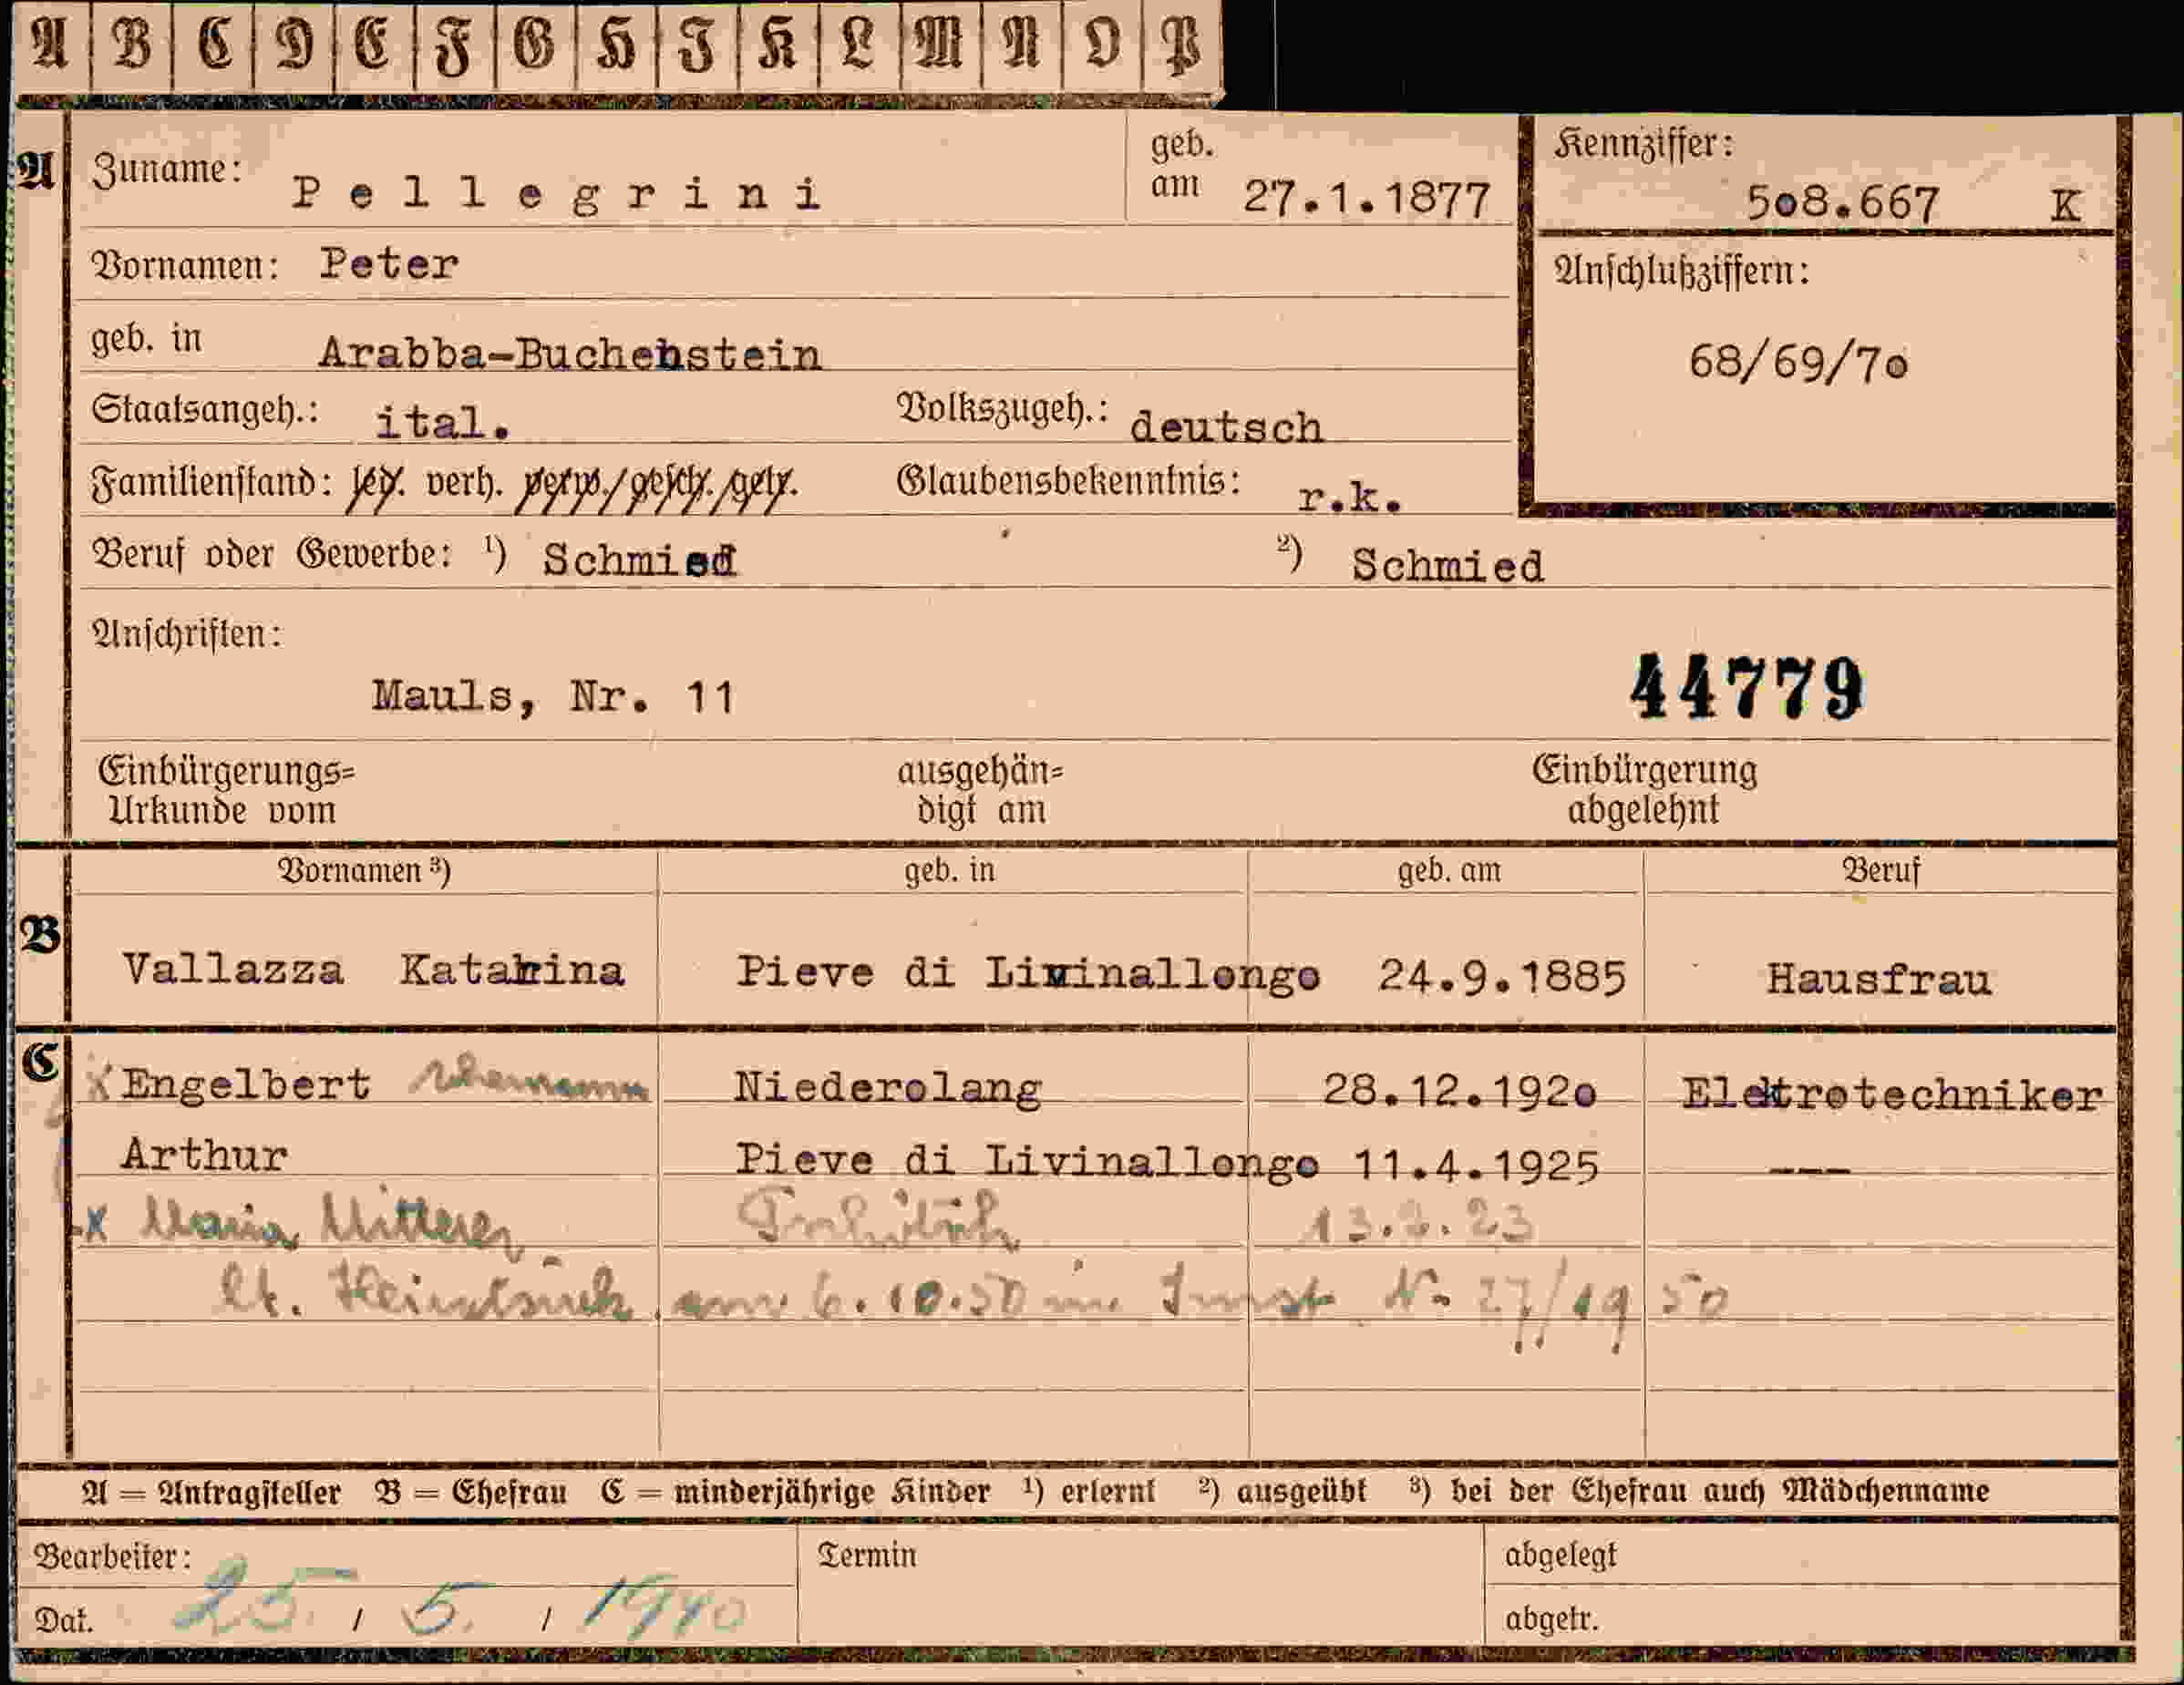 A B C D E F G H J K L M N O P
A Zuname: Pellegrini geb. am 27.1.1877
Kennziffer: 508.667 K
Vornamen: Peter
Anschlußziffern:
68/69/70
geb. in Arabba-Buchenstein
Staatsangeh.: ital. Volkszugeh.: deutsch
Familienstand: led. verh. verw./gesch./getr. Glaubensbekenntnis: r.k.
Beruf oder Gewerbe: ¹) Schmied ²) Schmied
Anschriften:
Mauls, Nr. 11 44779
Einbürgerungs= ausgehän= Einbürgerung
Urkunde vom digt am abgelehnt
Vornamen ³) geb. in geb. am Beruf
B Vallazza Katarina Pieve di Livinallongo 24.9.1885 Hausfrau
C x Engelbert Niederolang 28.12.1920 Elektrotechniker
Arthur Pieve di Livinallongo 11.4.1925 ---
x Maria Mitterer 23
lt. am 6.10.50 in Imst Nr. 27/1950
A = Antragsteller B = Ehefrau C = minderjährige Kinder ¹) erlernt ²) ausgeübt ³) bei der Ehefrau auch Mädchenname
Bearbeiter: Termin abgelegt
Dat. 25. / 5. / 1940 abgetr.